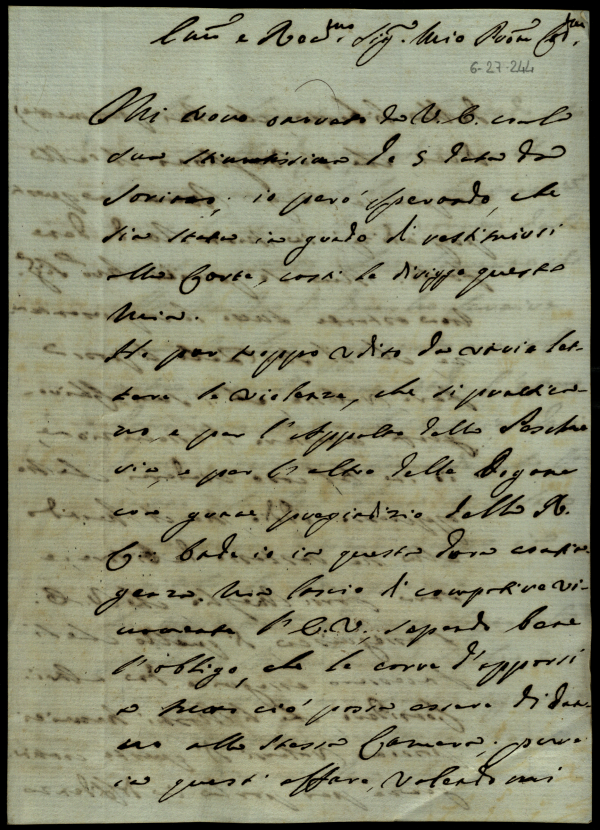 Em.mo e Rev.mo Sig.r Mio P.ron Col.mo
6-27-244
Mi trovo onorato da V. E. colla
sua stimatissima de 5 data da
Soriano; io però sperando, che
sia stata in grado di restituirsi
alla Corte, costì le dirigge questa
mia.
Ho pur troppo udito da varie let-
tere le violenze, che si pratticano
no, e per l'Appalto della Pesche
ria, e per l'altro delle Dogane
con grave pregiudizio della R.
C.: Onde io in questa dura contin-
genza, non lascio di compatire vi-
vamente l'E. V., sapendo bene
l'obligo, che le corre d'opporsi
a tutto ciò possa essere di dan-
no alla stessa Camera; però
in questi affari, valendomi